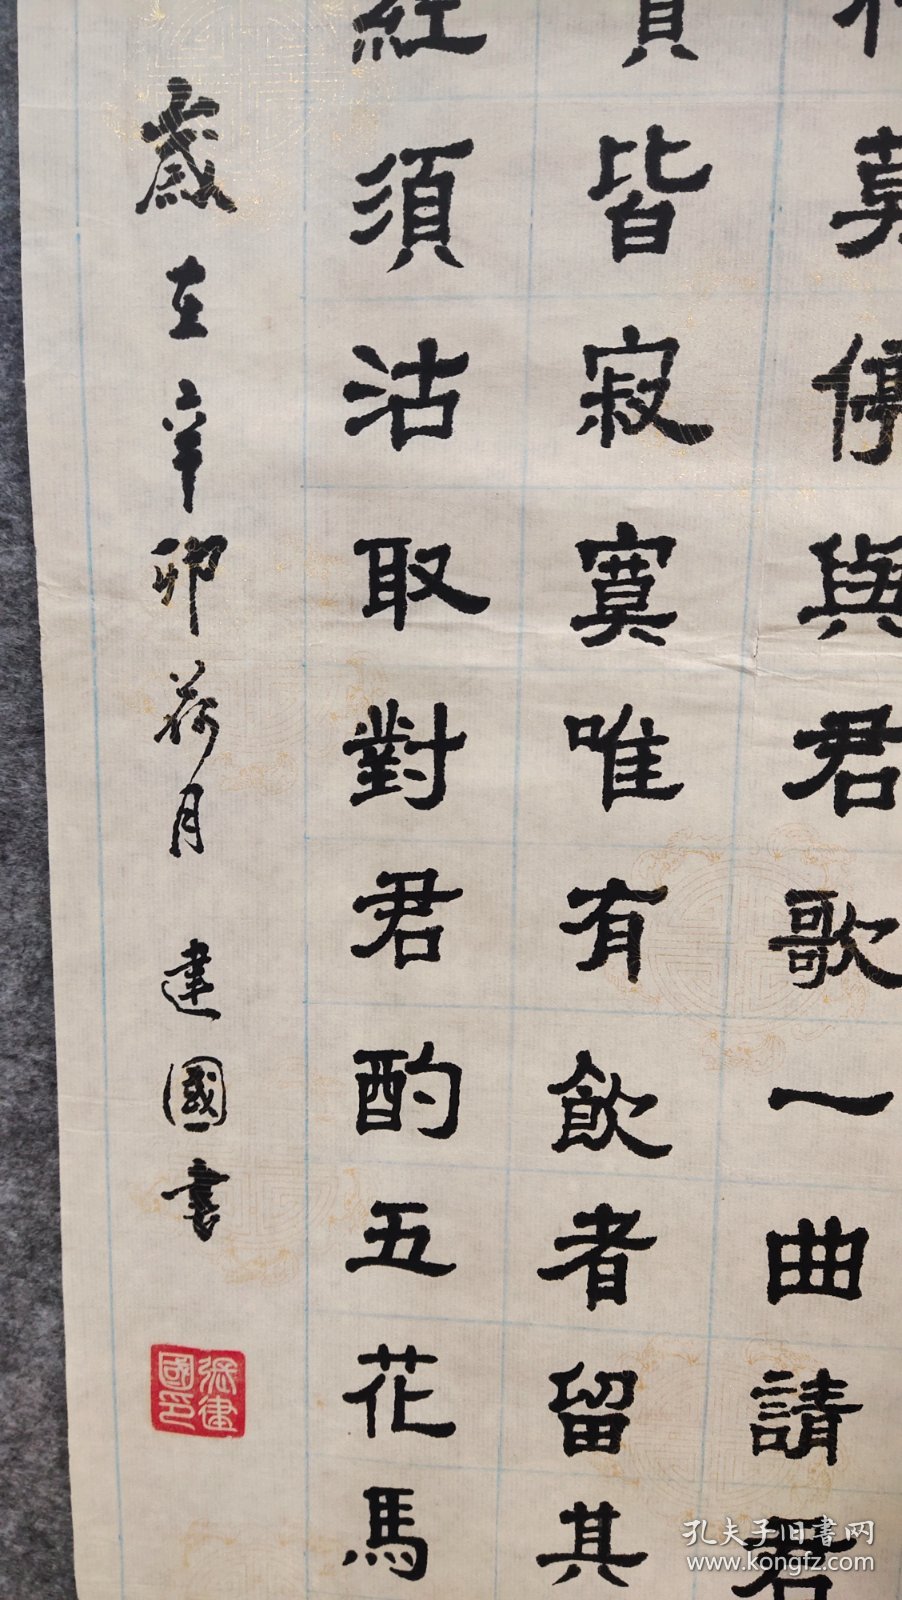 莫停與君歌一曲請君
皆寂寞唯有飲者留其
須沽取對君酌五花馬
歲在辛卯荷月建國書
張建國印
孔夫子旧書网
www.kongfz.com